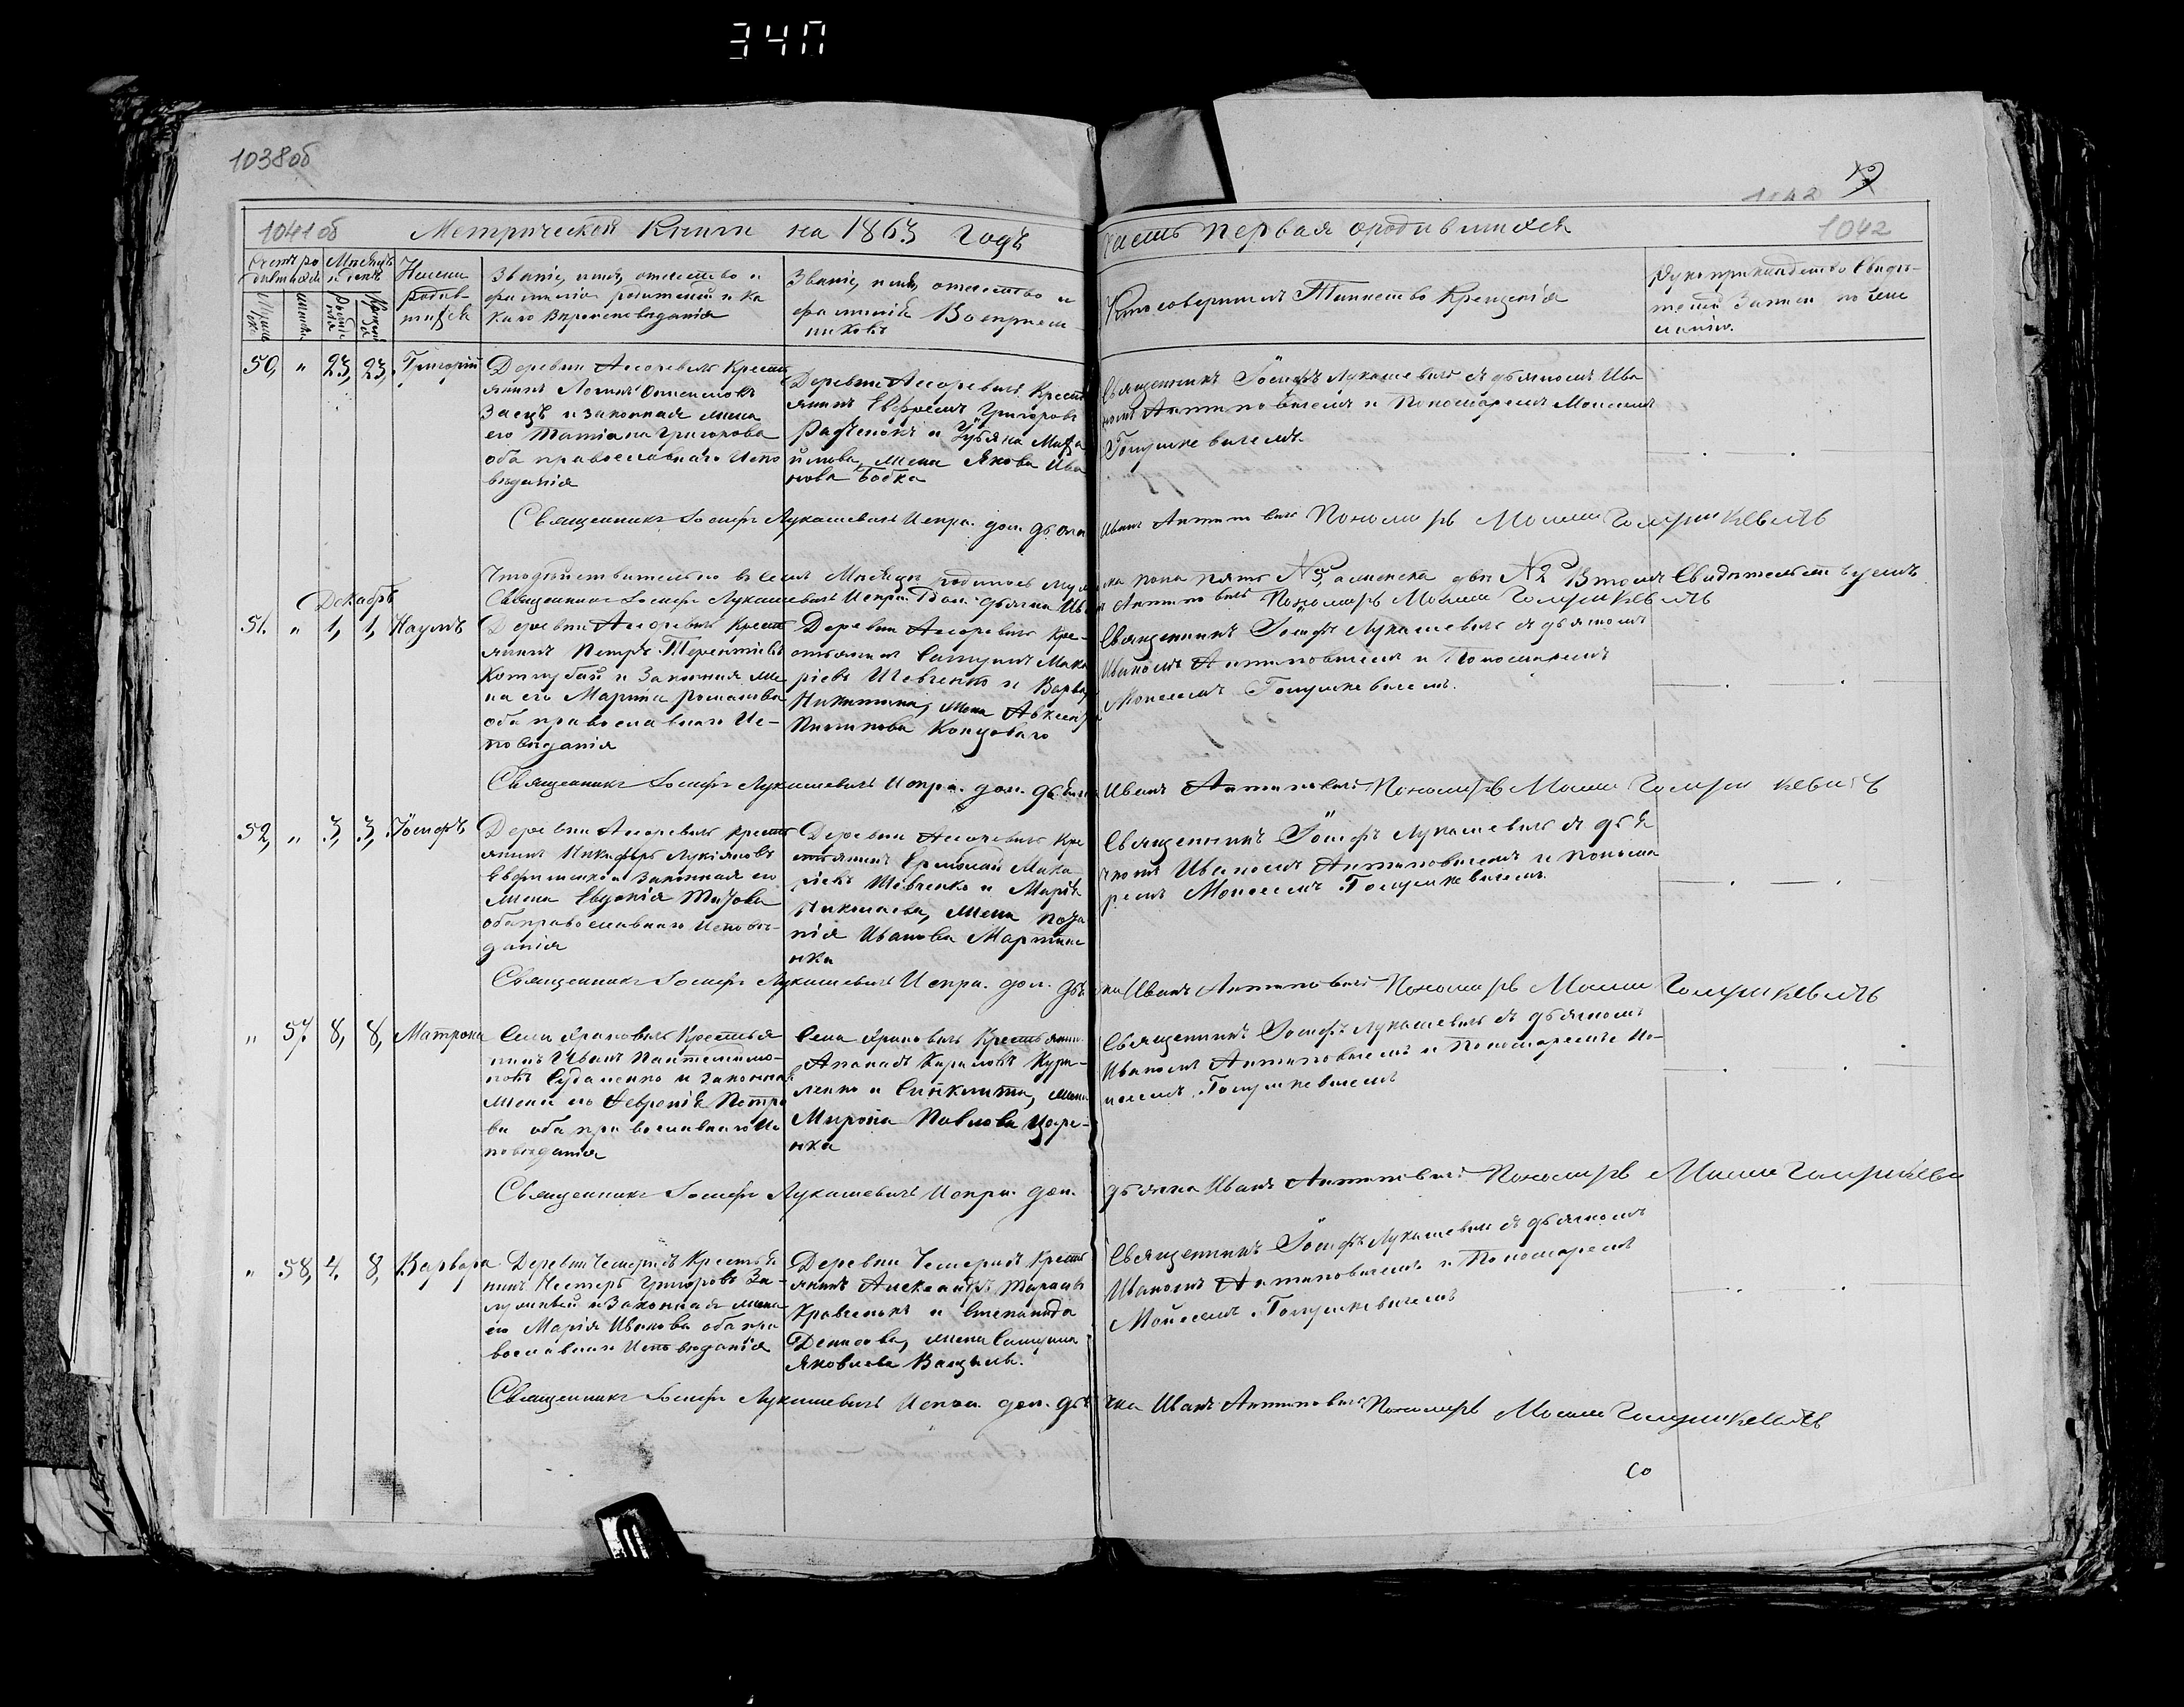 340
1038об
1042
1041об Метрической Книги на 1863 годъ
часть первая о родившихся 1042
Счетъ ро
дившихся
Мѣсяцъ
и день
Имена
родив-
шихся
Званіе, имя, отчество и
фамилія родителей и ка
кого вѣроисповѣданія
Званіе, имя, отчество и
фамилія Воспріем-
никовъ
Кто совершилъ Таинство Крещенія
Рукоприкладство Свидѣ-
телей Записи по жела
нію
50, " 23, 23, Григорій
Деревни Аксоревичъ Кресть
янинъ
Заецъ и законная жена
его Татіана Григорова
оба православнаго Испо
вѣданія
Деревни Аксоревичъ Кресть
янинъ Ефремъ Григоровъ
и Ульяна Миха
йлова, жена Якова Ива
нова Бобка
Священникъ Іосифъ Лукашевичъ съ дьячкомъ Ива
номъ Антиповичемъ и Пономаремъ Моисеемъ
Голушкевичемъ.
Священникъ Іосифъ Лукашевичъ Испр. дол. дьячка
Иванъ Антиповичъ Пономарь Моисей Голушкевичъ
Что дѣйствительно въ семъ Мѣсяцѣ родилось муже
ска пола пять №5, а женска два №2 В томъ Свидѣтельствуемъ
Священникъ Іосифъ Лукашевичъ Испр. дол. дьячка Ив
Антиповичъ Пономарь Моисей Голушкевичъ
Декабрь
51. " 1, 1, Наумъ
Деревни Аксоревичъ Кресть
янинъ Петръ Терентіевъ
Кочубей и Законная же
на его Марина Романова
оба православнаго Ис-
повѣданія
Деревни Аксоревичъ Кре-
стьянинъ Мака
ріевъ Шевченко и Варвара
Никитина, жена
Концоваго
Священникъ Іосифъ Лукашевичъ съ дьячкомъ
Иваномъ Антиповичемъ и Пономаремъ
Моисеемъ Голушкевичемъ.
Священникъ Іосифъ Лукашевичъ Испр. дол. дьячка
Иванъ Антиповичъ Пономарь Моисей Голушкевичъ
52, " 3, 3, Іосифъ
Деревни Аксоревичъ Кресть
янинъ Никифръ Лукіяновъ
и Законная его
жена Евдокія Титова
оба православнаго Исповѣ-
данія
Деревни Аксоревичъ Кре
стьянинъ Ермолай Мака
ріевъ Шевченко и Марія
Николаева, жена
нія Иванова Мартине
нка
Священникъ Іосифъ Лукашевичъ съ дья
чкомъ Иваномъ Антиповичемъ и понома
ремъ Моисеемъ Голушкевичемъ
Священникъ Іосифъ Лукашевичъ Испр. дол. дьяч
ка Иванъ Антиповичъ Пономарь Моисей Голушкевичъ
" 57. 8, 8, Матрона
Села Яриловичъ Крестья
нинъ Иванъ Пантелеимо-
новъ Судаленко и законная
жена его Февронія Петро
ва оба православнаго Ис
повѣданія
Села Яриловичъ Крестьянин
Ананій Кириловъ Кури-
ленко и Синклита, жена
Мирона Павлова Царе-
нка
Священникъ Іосифъ Лукашевичъ съ дьячкомъ
Иваномъ Антиповичемъ и Пономаремъ Мо-
исеемъ Голушкевичемъ
Священникъ Іосифъ Лукашевичъ Испр. дол.
дьячка Иванъ Антиповичъ Пономарь Моисей Голушкеви
" 58, 4. 8, Варвара
Деревни Чемеричъ Крестья
нинъ Несторъ Григоровъ За-
и Законная жена
его Марія Иванова оба пра
вославнаго Исповѣданія
Деревни Чемеричъ Кресть
янинъ Александръ Тарасовъ
Кравченокъ и Степанида
Денисова, жена
Яковлева
Священникъ Іосифъ Лукашевичъ съ дьячкомъ
Иваномъ Антиповичемъ и Пономаремъ
Моисеемъ Голушкевичемъ
Священникъ Іосифъ Лукашевичъ Испр. дол. дья
чка Иванъ Антиповичъ Пономарь Моисей Голушкевичъ
Со